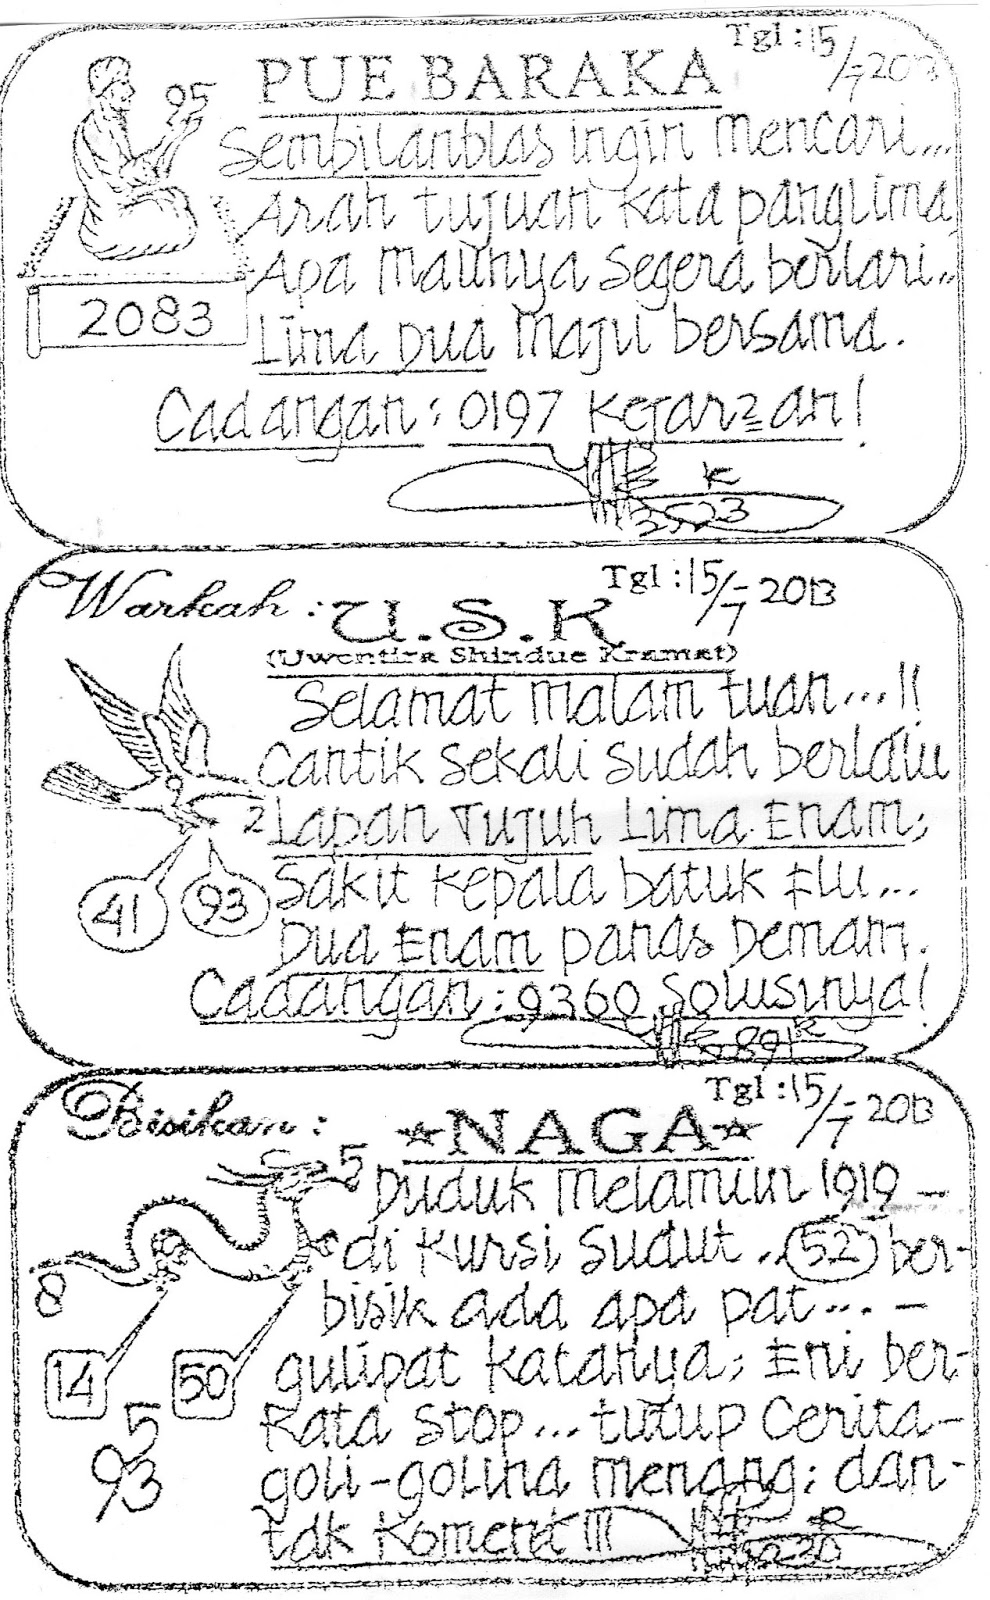 Tgl : 15/-7 2013
PUE BARAKA
95
Sembilanblas ingin mencari...
Arah tujuan kata panglima,
Apa maunya segera berlari..
2083
Lima Dua maju bersama.
Cadangan : 0197 Kejar2an!
K
3523
Tgl : 15/-7 2013
Warkah : U.S.K
(Uwentira Shindue Kramat)
Selamat malam tuan...!!
Cantik sekali sudah berlalu
2
Lapan Tujuh Lima Enam;
41 93
Sakit kepala batuk Flu...
Dua Enam panas Demam.
Cadangan : 9360 solusinya!
891 K
Tgl : 15/-7 2013
Bisikan : NAGA
5
Duduk melamun 1919 -
di kursi sudut .. 52 ber-
8
bisik ada apa pat... -
14 50
gulipat katanya; Eni ber-
kata stop... tutup cerita-
5
93
goli-golina menang; dan-
tdk komeret!!!
R